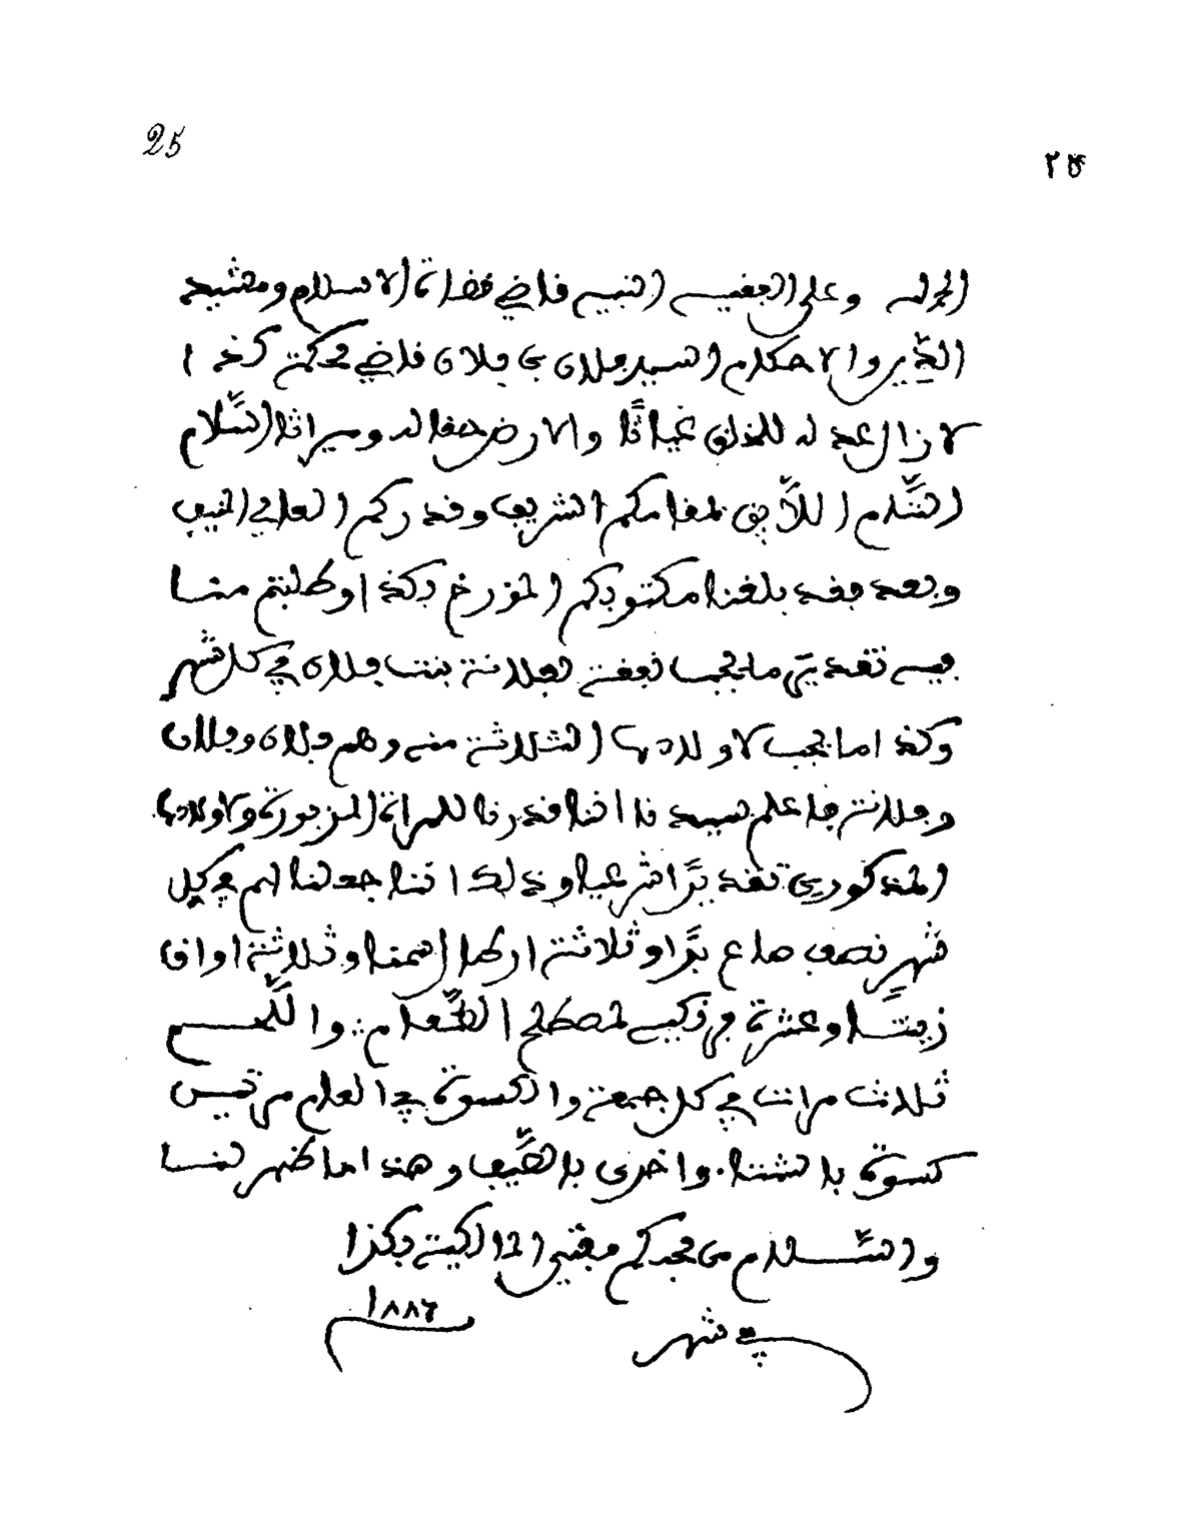 25
٢٥
الحمد لله وعلى الفقيه النبيه قاضي قضاة الاسلام ومشيد
الدّين والاحكام السيد فلان بن فلان قاضي محكمة كذا
لا زال عدله للخلق غياثًا والارض حقا له وميراثا السَّلام
السَّلام اللّايق لمقامكم الشريف وقدركم العالي المنيف
وبعد فقد بلغنا مكتوبكم المؤرخ بكذا وطلبتم منا
فيه تقدير ما يجب نفقة لفلانة بنت فلان في كل شهر
وكذا ما يجب لاولادها الثلاثة منه وهم فلان وفلان
وفلانة فاعلم سيدنا اننا قدرنا للمراة المزبورة ولاولادها
المذكورين تقديرًا شرعيا وذلك اننا جعلنا لهم في كل
شهر نصف صاع برًّا وثلاثة ارطال سمنا وثلاثة اواق
زيتًا وعشرة فرنكيه لمصطلح الطّعام والَّلحم
ثلاث مرات في كل جمعة والكسوة في العام مرتين
كسوة بالشتا واخرى بالصَّيف وهذا ما ظهر لنا
والسَّلام من محبكم مفتي المالكية بكذا
في شهر ١٨٨٦